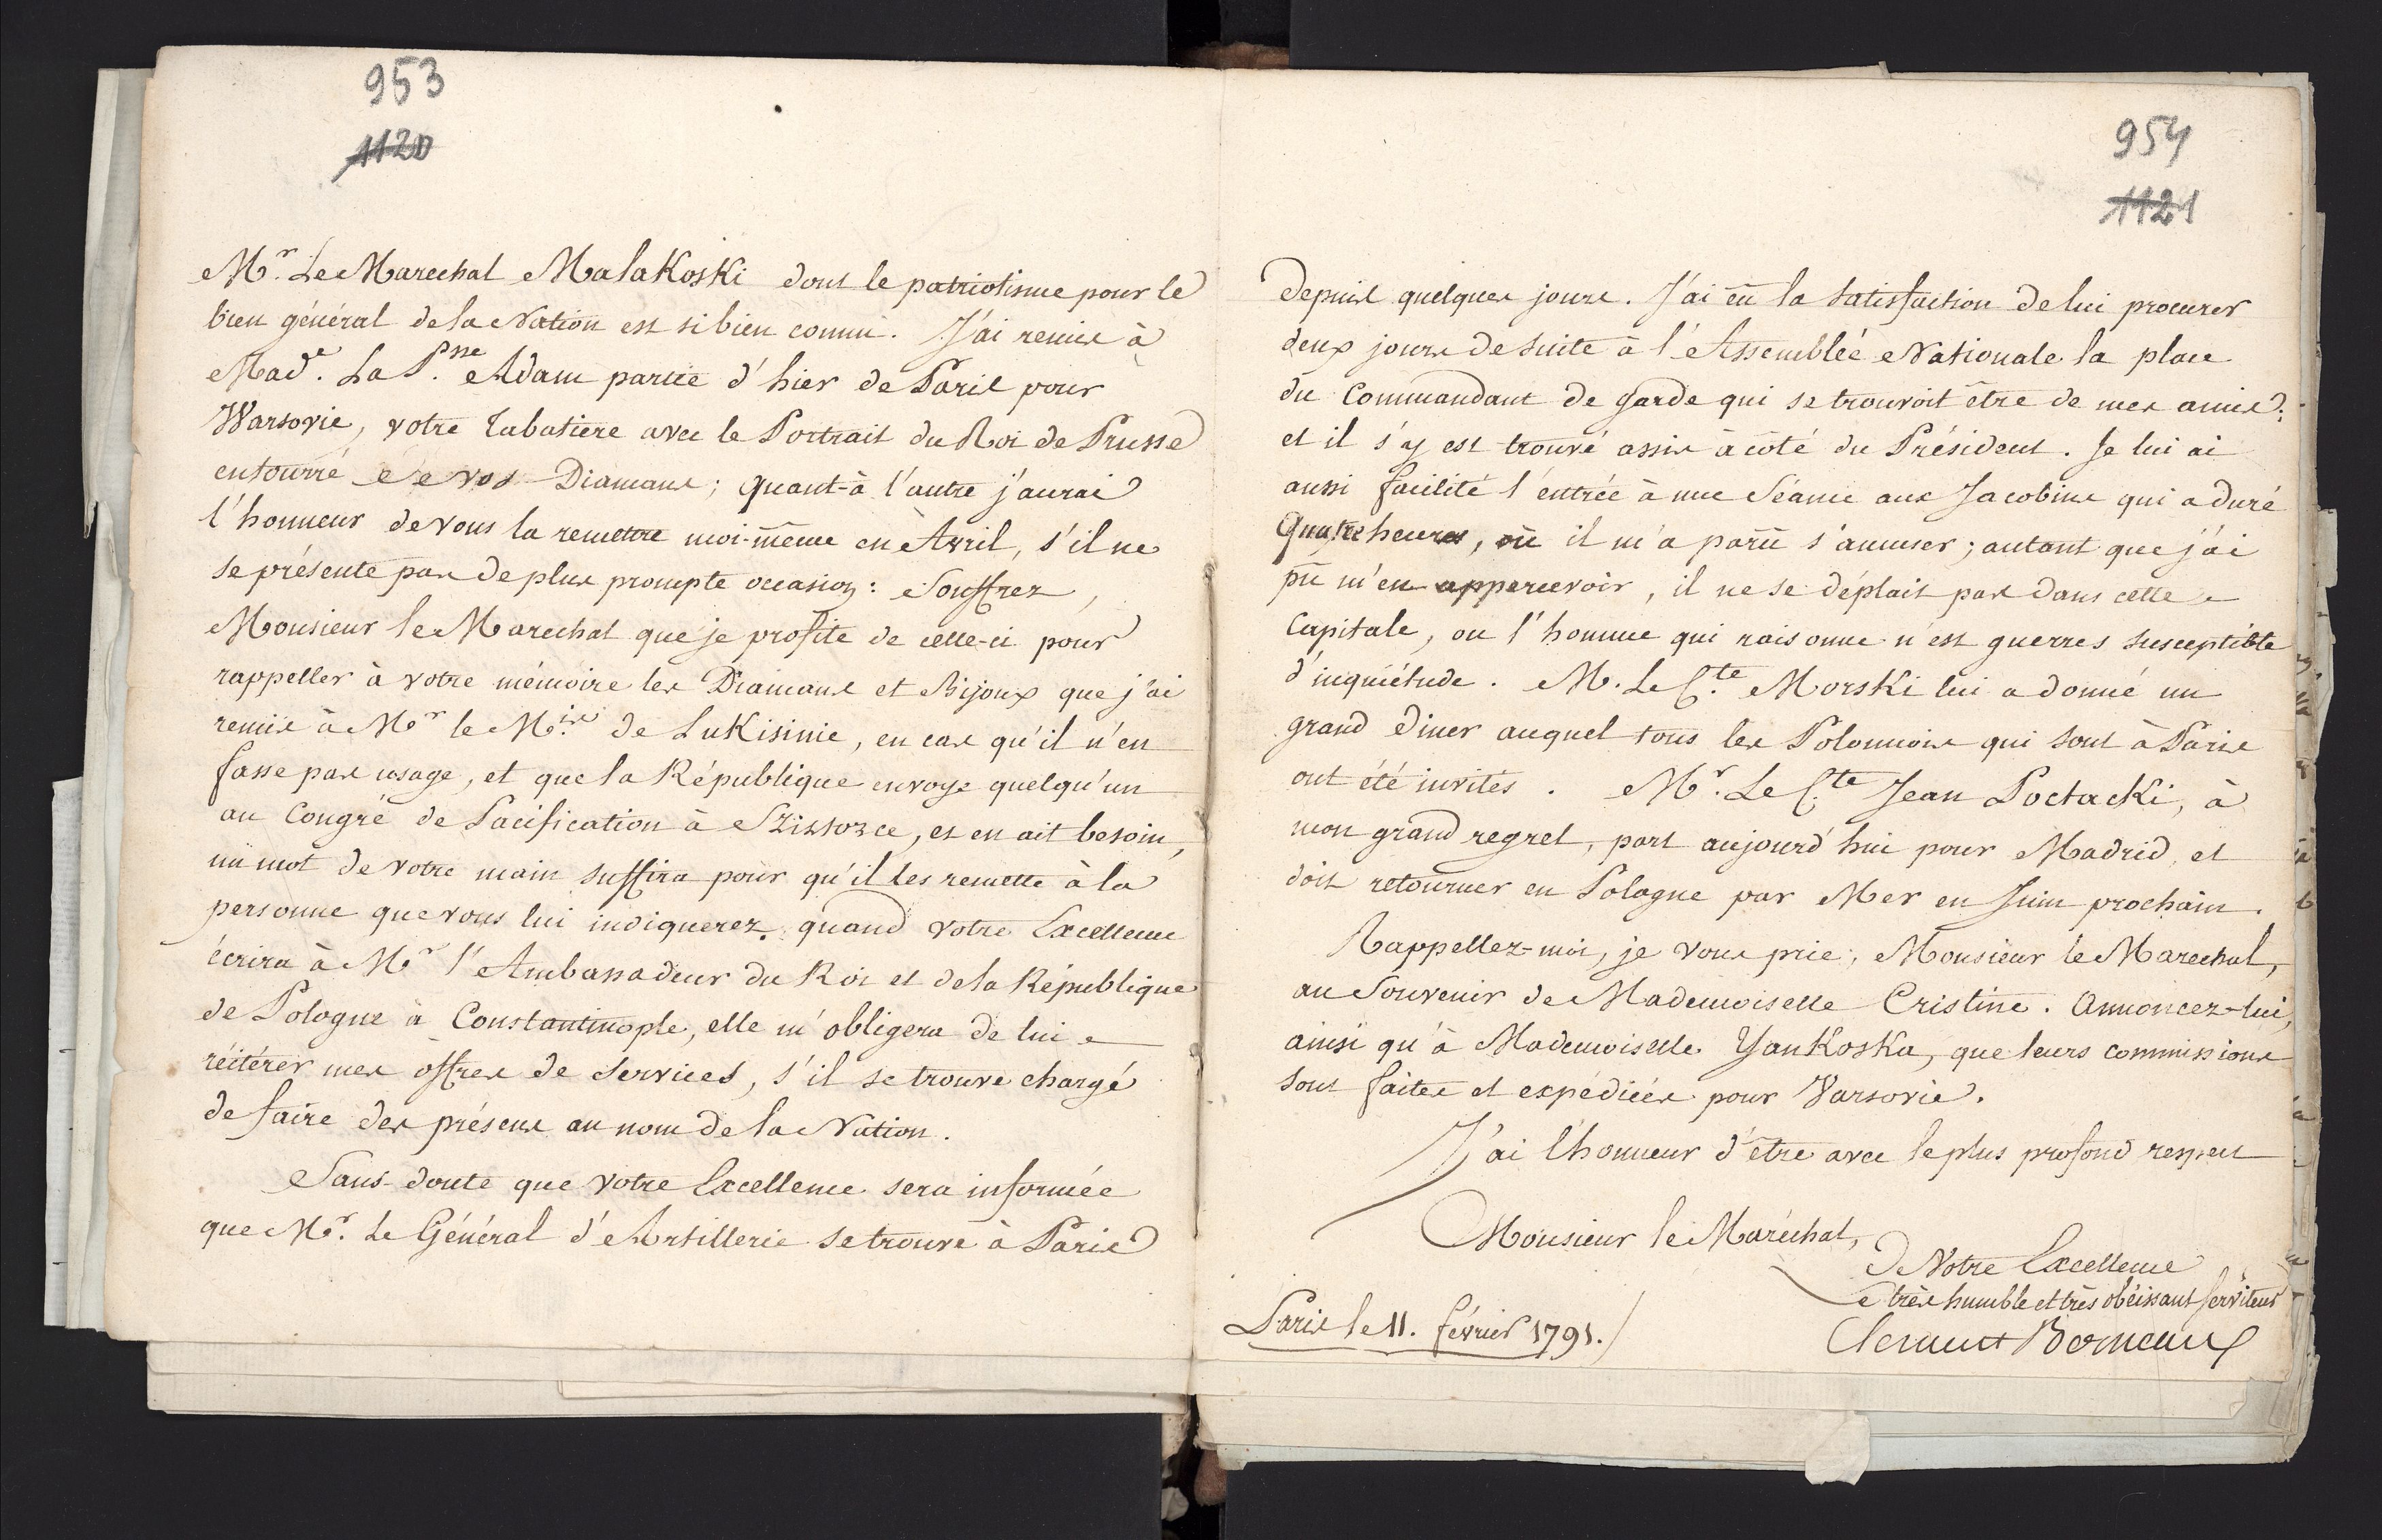 953
1120
Mr. Le Marechal MalaKosKi dont le patriotisme pour le
bien général de la Nation est si bien connu. J'ai remis à
Made. La Psse. Adam partie d'hier de Paris pour
Warsovie, votre Tabatiere avec le Portrait du Roi de Prusse
entourré de vos Diamans; quant-à l'autre j'aurai
l'honneur de vous la remettre moi-même en Avril, s'il ne
se présente pas de plus prompte occasion: Souffrez,
Monsieur le Marechal que je profite de celle-ci pour
rappeller à votre mémoire les Diamans et Bijoux que j'ai
remis à Mr le Mis. de LuKisinie, en cas qu'il n'en
fasse pas usage, et que la République envoye quelqu'un
au Congré de Pacification à Szissozce, et en ait besoin,
un mot de votre main suffira pour qu'il les remette à la
personne que vous lui indiquerez. quand votre Excellence
écrira à Mr l'Ambassadeur du Roi et de la République
de Pologne à Constantinople, elle m'obligera de lui
réitérer mes offres de services, s'il se trouve chargé
de faire des présens au nom de la Nation.
Sans-doute que votre Excellence sera informée
que Mr. Le Général d'Artillerie se trouve à Paris
954
1121
depuis quelques jours. J'ai eû la satisfaction de lui procurer
deux jours de suite à l'Assemblée Nationale la place
du Commandant de garde qui se trouvoit être de mes amis:
et il s'y est trouvé assis à côté du Président. Je lui ai
aussi facilité l'entrée à une Séance aux Jacobins qui a duré
Quatre heures, où il m'a parû s'amuser; autant que j'ai
pû m'en appercevoir, il ne se déplait pas dans cette
Capitale, ou l'homme qui raisonne n'est guerres susceptible
d'inquiétude. M. Le Cte. MorsKi lui a donné un
grand diner auquel tous les Polonnois qui sont à Paris
ont été invités. Mr. Le Cte Jean PoctacKi, à
mon grand regret, part aujourd'hui pour Madrid, et
doit retourner en Pologne par Mer en Juin prochain.
Rappellez-moi, je vous prie, Monsieur le Marechal,
au Souvenir de Mademoiselle Cristine. Annoncez-lui,
ainsi qu'à Mademoiselle YanKosKa, que leurs commissions
sont faites et expédiées pour Varsovie.
J'ai l'honneur d'être avec le plus profond respect
Monsieur le Maréchal,
De Votre Excellence
Le très humble et très obéissant serviteur
Paris le 11. février 1791.
Clement Berneaux